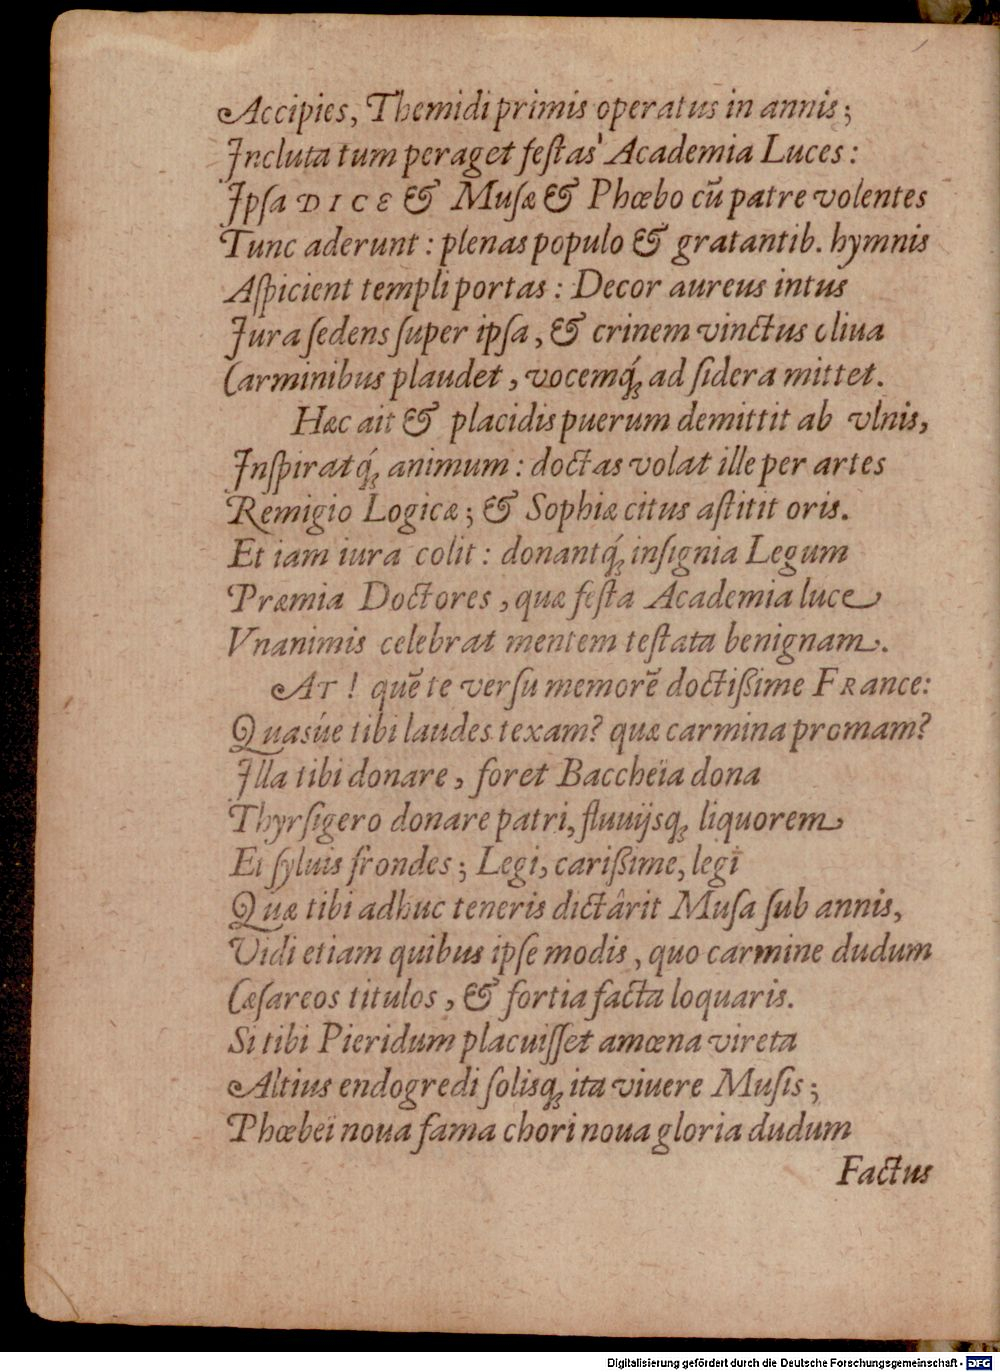 Accipies, Themidi primis operatus in annis;
Incluta tum peraget feſtas Academia Luces:
Ipſa DICE & Muſæ & Phœbo cū patre volentes
Tunc aderunt: plenas populo & gratantib. hymnis
Aſpicient templi portas: Decor aureus intus
Jura ſedens ſuper ipſa, & crinem vinctus oliua
Carminibus plaudet, vocemq́; ad ſidera mittet.
Hæc ait & placidis puerum demittit ab vlnis,
Inſpiratq́; animum: doctas volat ille per artes
Remigio Logicæ; & Sophiæ citus aſtitit oris.
Et iam iura colit: donantq́; inſignia Legum
Præmia Doctores, quæ feſta Academia luce
Vnanimis celebrat mentem teſtata benignam.
AT! quē te verſu memorē doctißime FRance:
Quasúe tibi laudes texam? quæ carmina promam?
Illa tibi donare, foret Baccheïa dona
Thyrſigero donare patri, fluuijsq; liquorem
Et ſyluis frondes; Legi, carißime, legi
Quæ tibi adhuc teneris dictârit Muſa ſub annis,
Vidi etiam quibus ipſe modis, quo carmine dudum
Cæſareos titulos, & fortia facta loquaris.
Si tibi Pieridum placuiſſet amœna vireta
Altius endogredi ſolisq; ita viuere Muſis;
Phœbeï noua fama chori noua gloria dudum
Factus
Digitalisierung gefördert durch die Deutsche Forschungsgemeinschaft - DFG